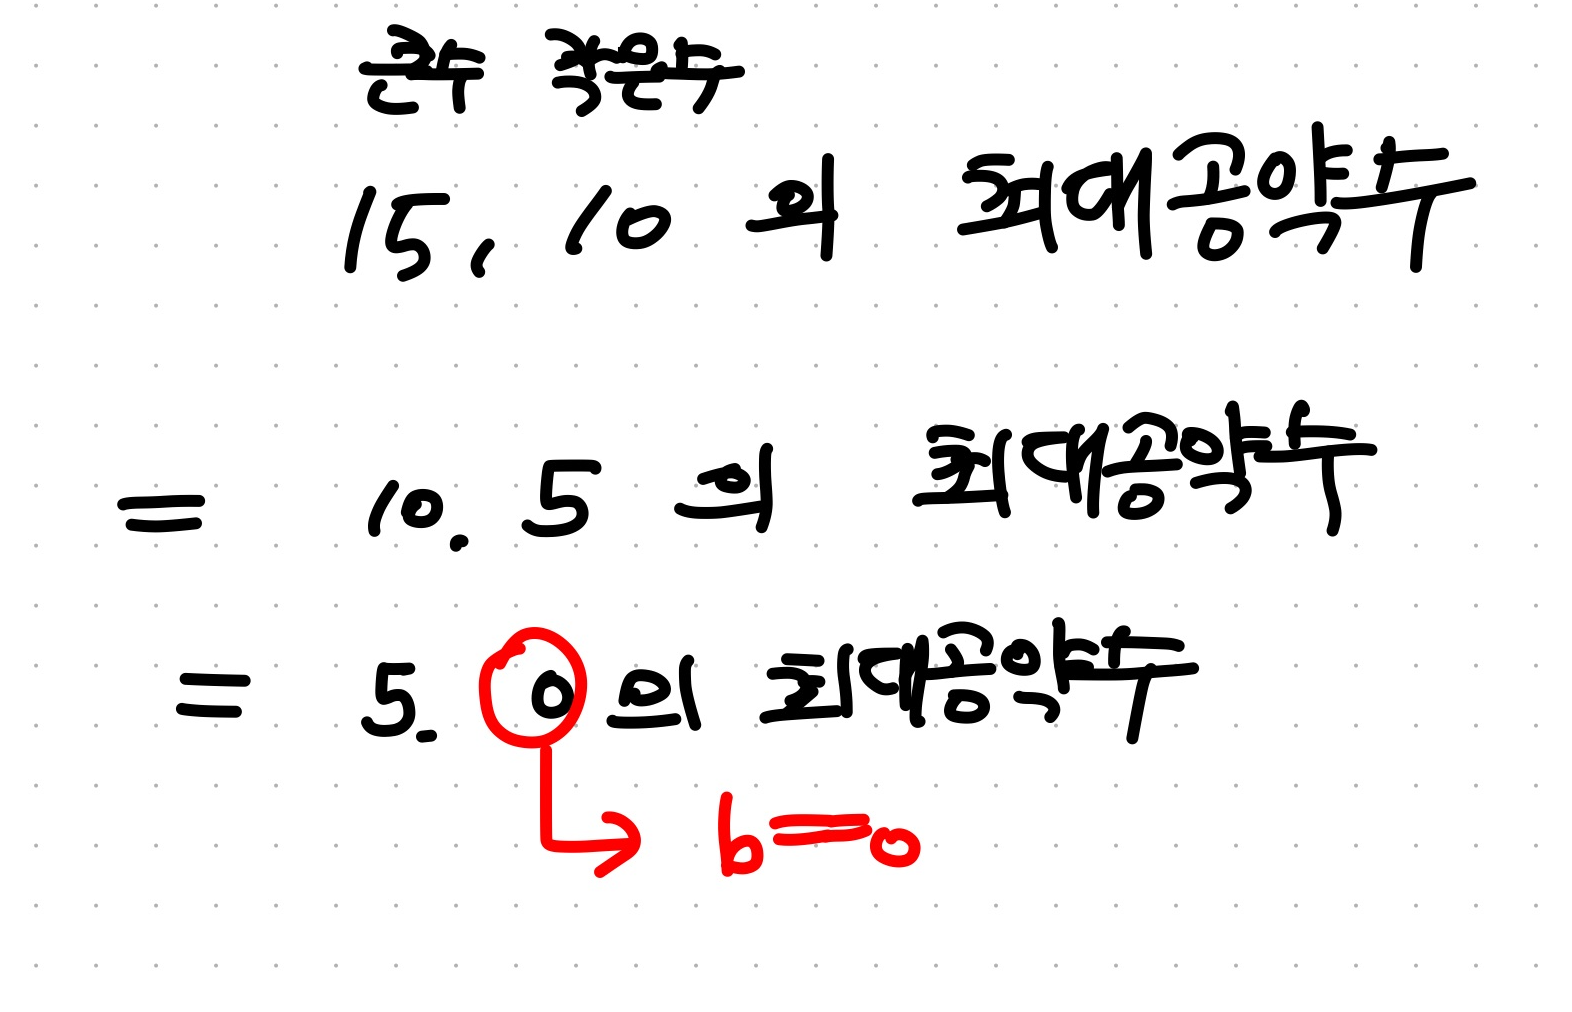 큰수 작은수
15, 10 의 최대공약수
= 10. 5 의 최대공약수
= 5. 0의 최대공약수
b=0